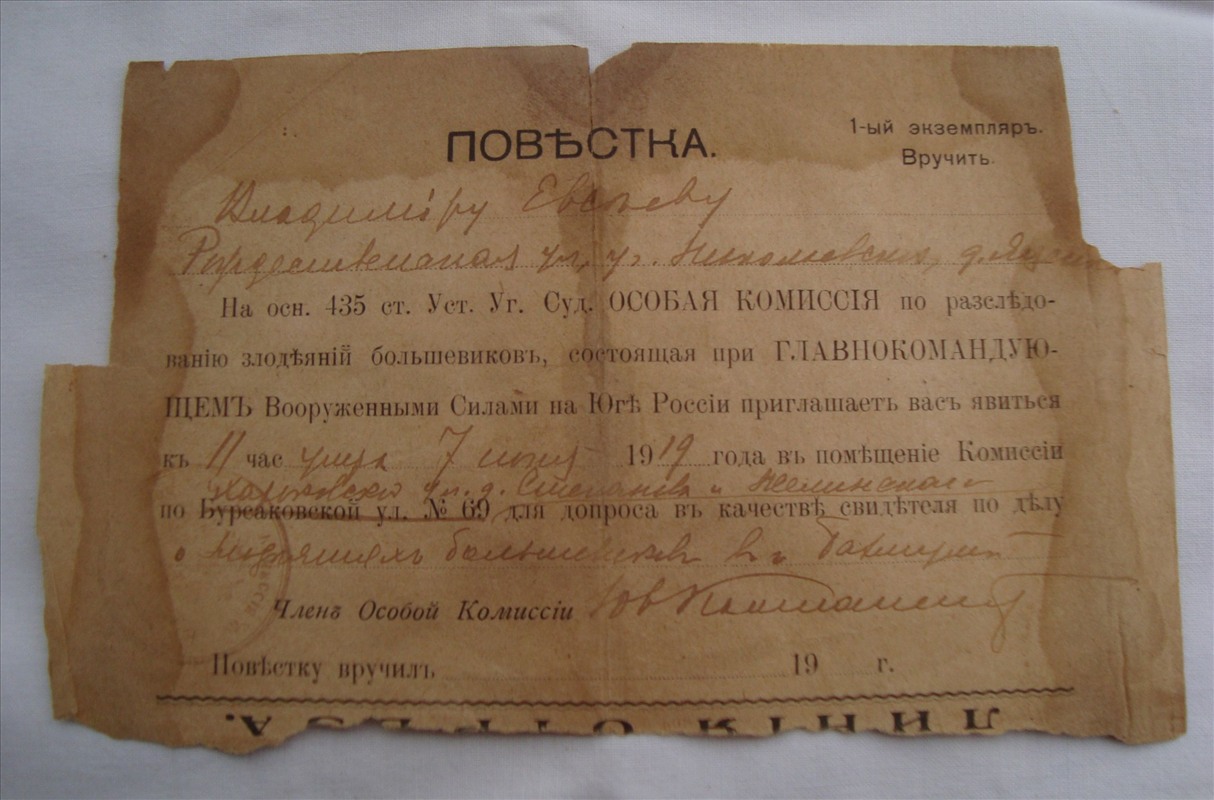 1-ый экземпляръ.
Вручить.
ПОВѢСТКА.
Владиміру Евсѣеву
Рождественская ул,
На осн. 435 ст. Уст. Уг. Суд. ОСОБАЯ КОМИССІЯ по разслѣдо-
ванію злодѣяній большевиковъ, состоящая при ГЛАВНОКОМАНДУЮ-
ЩЕМЪ Вооруженными Силами на Югѣ Россіи приглашаетъ васъ явиться
къ 11 час утра 7 1919 года въ помѣщеніе Комиссіи
ул. д. Степанова и
по Бурсаковской ул. № 69 для допроса въ качествѣ свидѣтеля по дѣлу
о большевиков в г.
Членъ Особой Комиссіи
Повѣстку вручилъ 19 г.
ЛИНІЯ ОТРѢЗА.